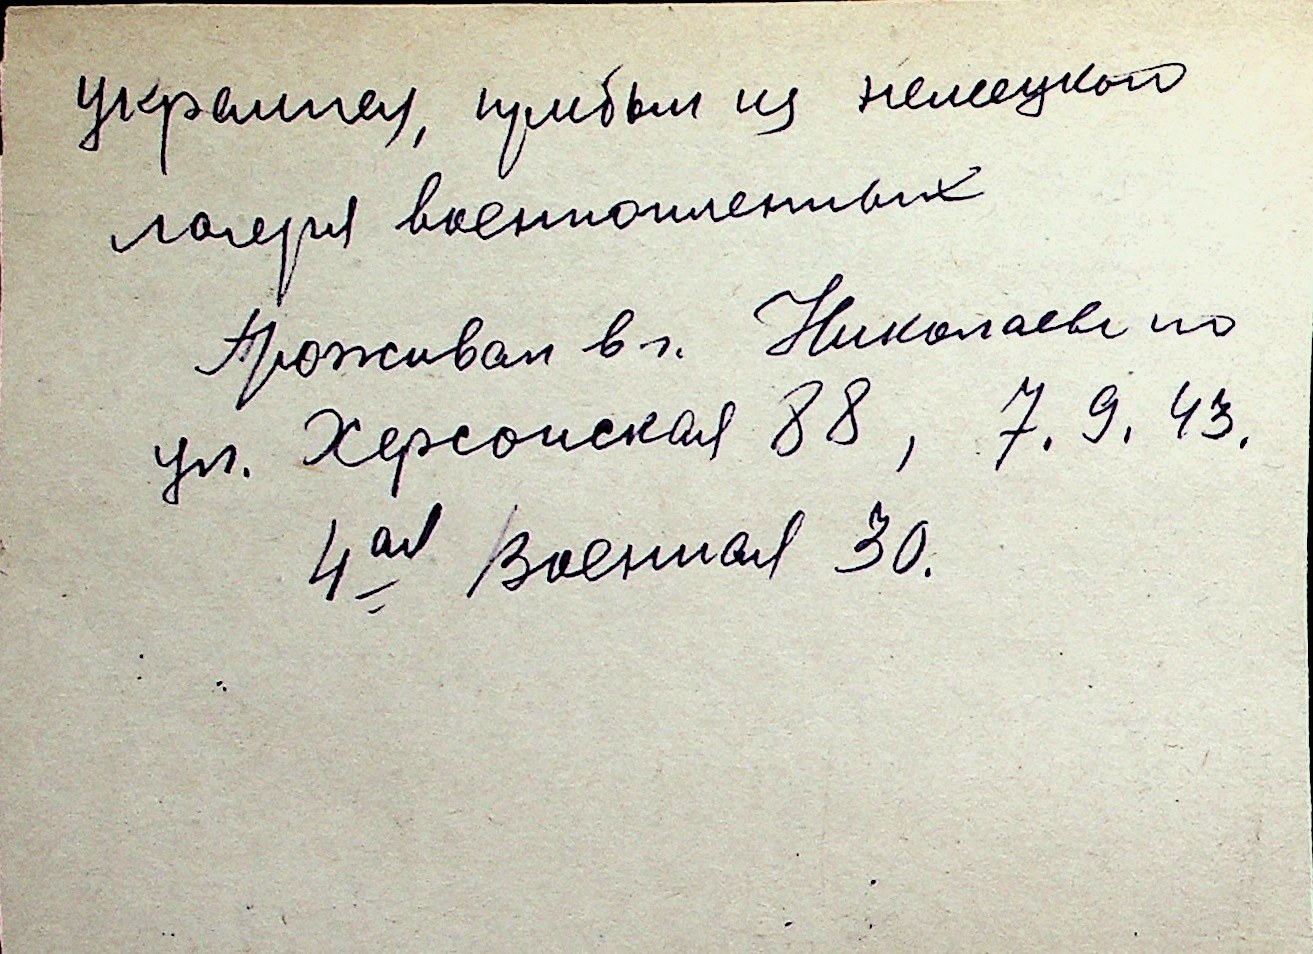 украинец, прибыл из немецкого
лагеря военнопленных
Проживал в г. Николаеве по
ул. Херсонская 88, 7.9.43.
4ая Военная 30.